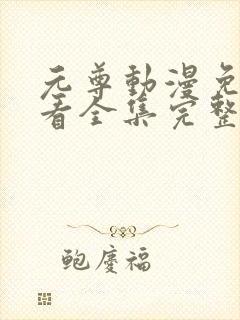 元尊動漫免
看全集完整
鲍慶福